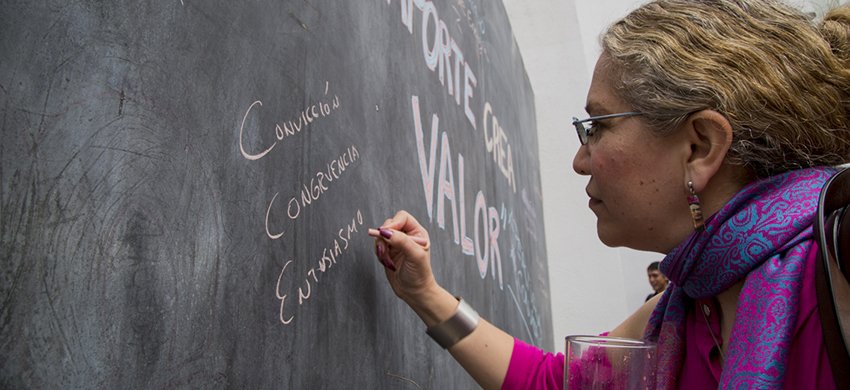 PORTE
CREA
VALOR
CONVICCIÓN
CONGRUENCIA
ENTUSIASMO